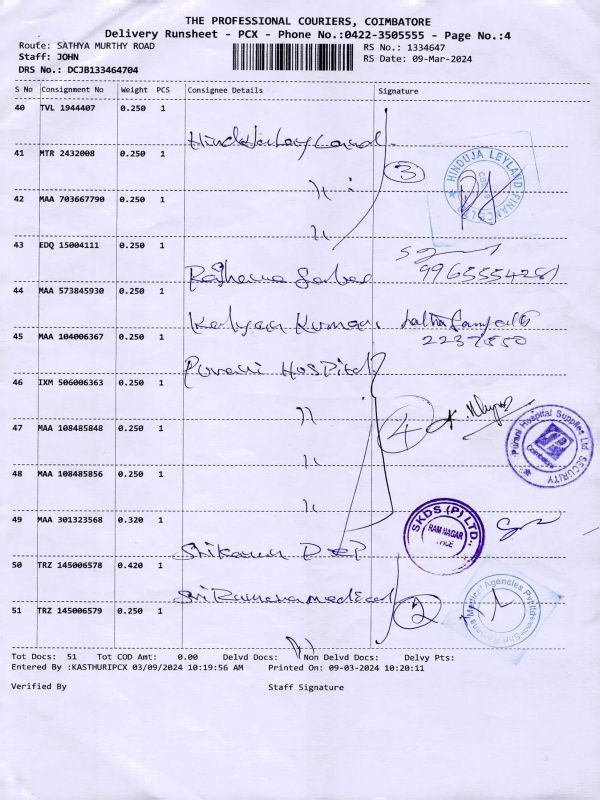 THE PROFESSIONAL COURIERS, COIMBATORE
Delivery Runsheet - PCX - Phone No.:0422-3505555 - Page No.:4
Route: SATHYA MURTHY ROAD
RS No.: 1334647
Staff: JOHN
RS Date: 09-Mar-2024
DRS No.: DCJB133464704
S No Consignment No Weight PCS Consignee Details Signature
40 TVL 1944407 0.250 1
41 MTR 2432008 0.250 1
3
HINDUJA LEYLAND FINANCE
42 MAA 703667790 0.250 1
43 EDQ 15004111 0.250 1
44 MAA 573845930 0.250 1
Kalyan Kumar
45 MAA 104006367 0.250 1
2237550
Purani Hospital
46 IXM 506006363 0.250 1
47 MAA 108485848 0.250 1
4
Purani Hospital Supplies Ltd SECURITY
Coimbatore
48 MAA 108485856 0.250 1
49 MAA 301323568 0.320 1
SKDS (P) LTD.,
RAM NAGAR
50 TRZ 145006578 0.420 1
Sri Ramana medical
51 TRZ 145006579 0.250 1
2
Medical Agencies
Tot Docs: 51 Tot COD Amt: 0.00 Delvd Docs: Non Delvd Docs: Delvy Pts:
Entered By :KASTHURIPCX 03/09/2024 10:19:56 AM Printed On: 09-03-2024 10:20:11
Verified By Staff Signature